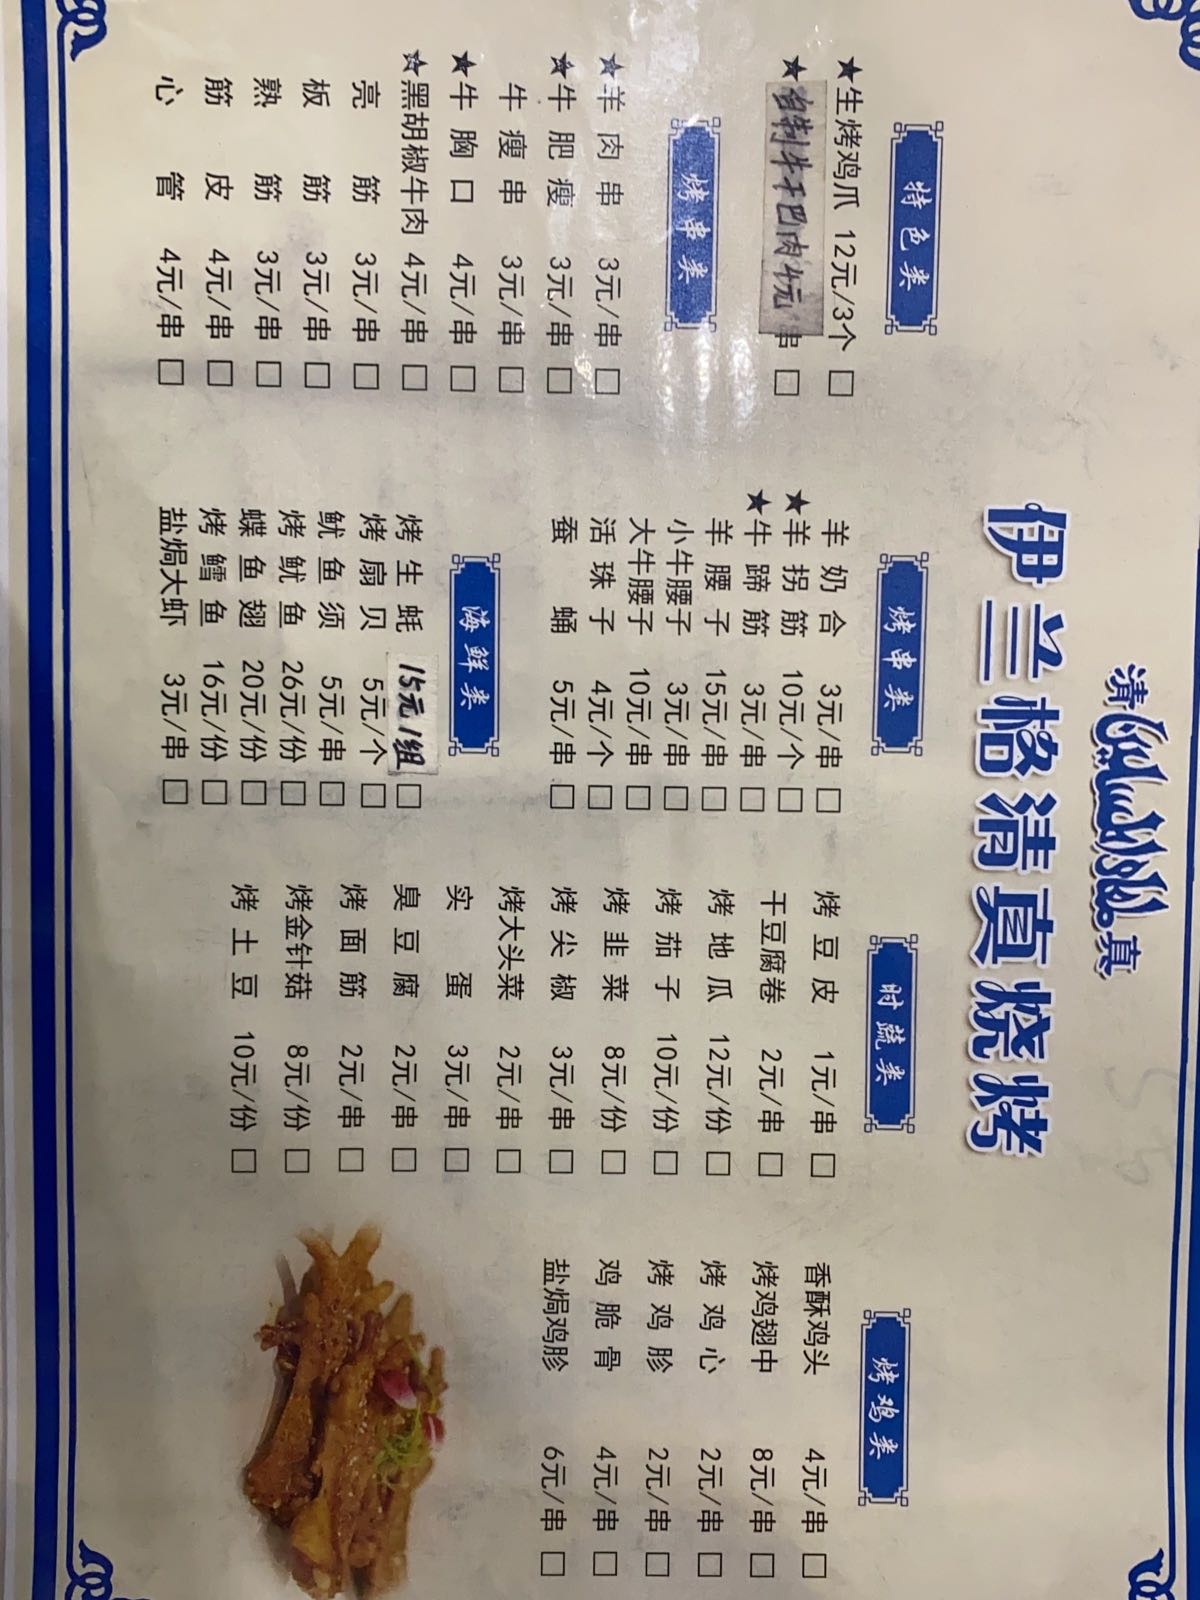 清 真
伊兰格清真烧烤
特色类
★生烤鸡爪 12元/3个 □
★自制牛干巴肉4元/串 □
烤串类
★羊肉串 3元/串 □
★牛肥瘦 3元/串 □
牛瘦串 3元/串 □
★牛胸口 4元/串 □
☆黑胡椒牛肉 4元/串 □
亮筋 3元/串 □
板筋 3元/串 □
熟筋 3元/串 □
筋皮 4元/串 □
心管 4元/串 □
烤串类
羊奶合 3元/串 □
★羊拐筋 10元/个 □
★牛蹄筋 3元/串 □
羊腰子 15元/串 □
小牛腰子 3元/串 □
大牛腰子 10元/串 □
活珠子 4元/个 □
蚕蛹 5元/串 □
海鲜类
烤生蚝 15元1组 □
烤扇贝 5元/个 □
鱿鱼须 5元/串 □
烤鱿鱼 26元/份 □
蝶鱼翅 20元/份 □
烤鳕鱼 16元/份 □
盐焗大虾 3元/串 □
时蔬类
烤豆皮 1元/串 □
干豆腐卷 2元/串 □
烤地瓜 12元/份 □
烤茄子 10元/份 □
烤韭菜 8元/份 □
烤尖椒 3元/串 □
烤大头菜 2元/串 □
实蛋 3元/串 □
臭豆腐 2元/串 □
烤面筋 2元/串 □
烤金针菇 8元/份 □
烤土豆 10元/份 □
烤鸡类
香酥鸡头 4元/串 □
烤鸡翅中 8元/串 □
烤鸡心 2元/串 □
烤鸡胗 2元/串 □
鸡脆骨 4元/串 □
盐焗鸡胗 6元/串 □